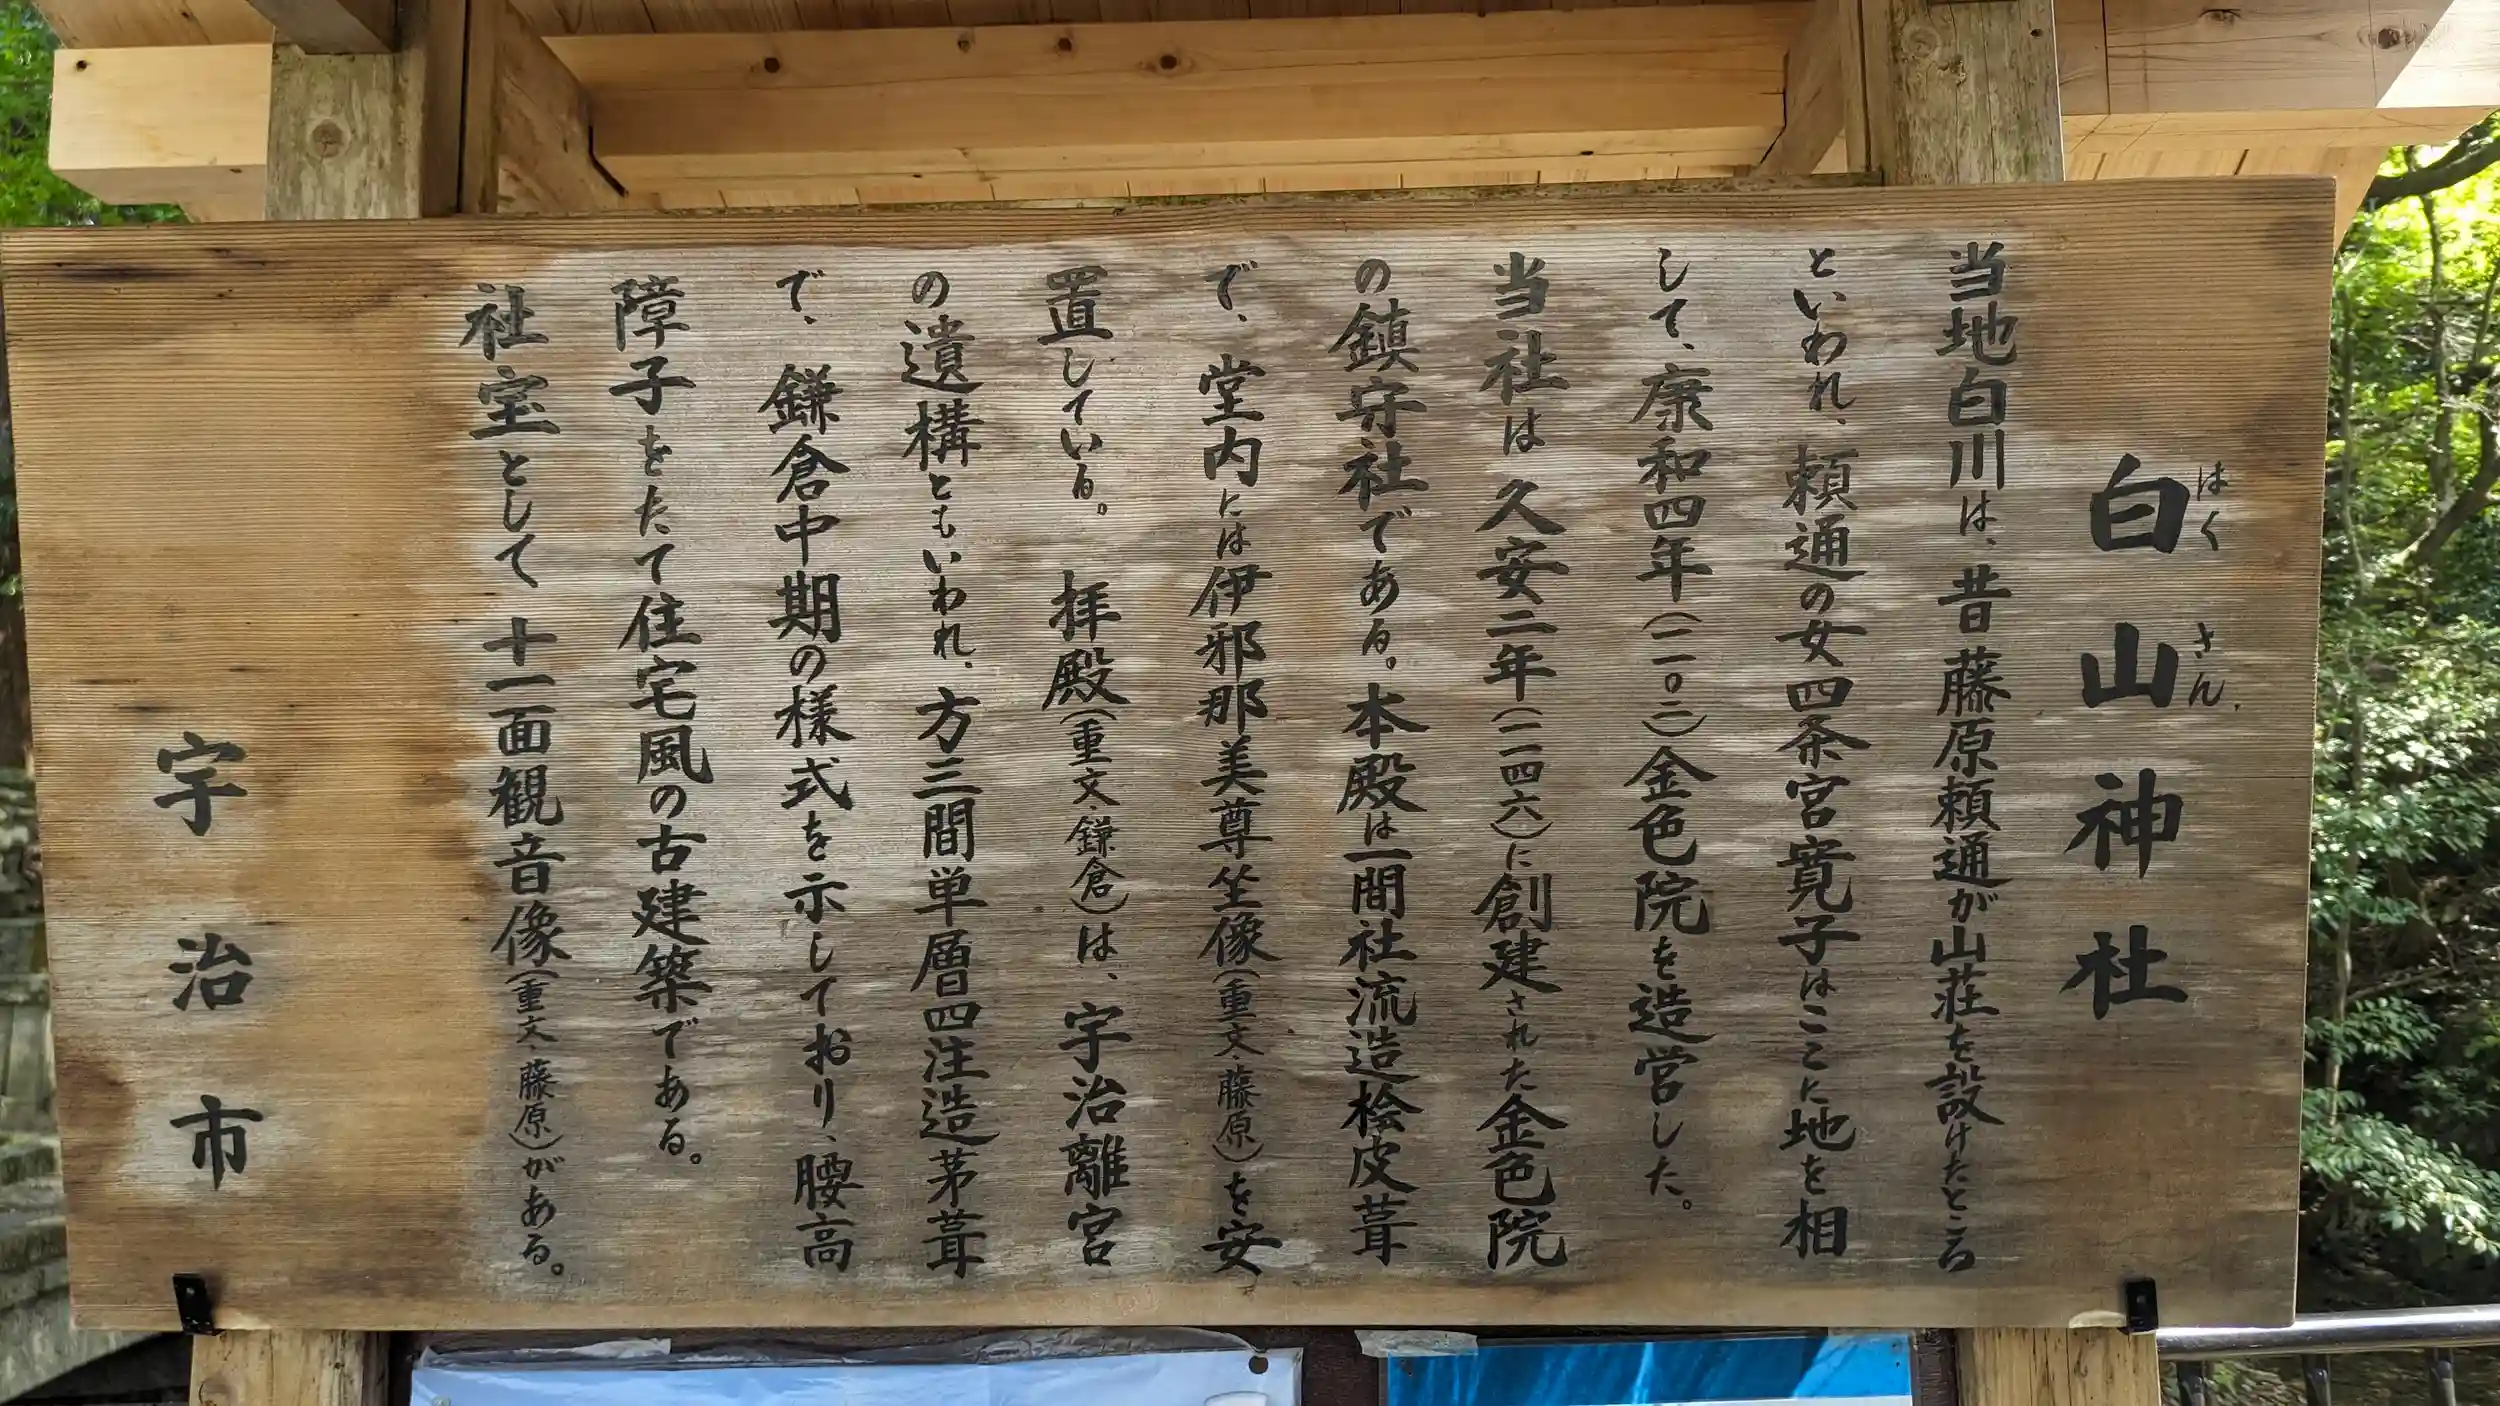 白山神社
はくさん
当地白川は、昔藤原頼通が山荘を設けたところ
といわれ、頼通の女四条宮寛子はここに地を相
して、康和四年(一一〇二)金色院を造営した。
当社は久安二年(一一四六)に創建された金色院
の鎮守社である。本殿は一間社流造桧皮葺
で、堂内には伊邪那美尊坐像(重文・藤原)を安
置している。拝殿(重文・鎌倉)は、宇治離宮
の遺構ともいわれ、方三間単層四注造茅葺
で、鎌倉中期の様式を示しており、腰高
障子をたて住宅風の古建築である。
社宝として十一面観音像(重文・藤原)がある。
宇治市